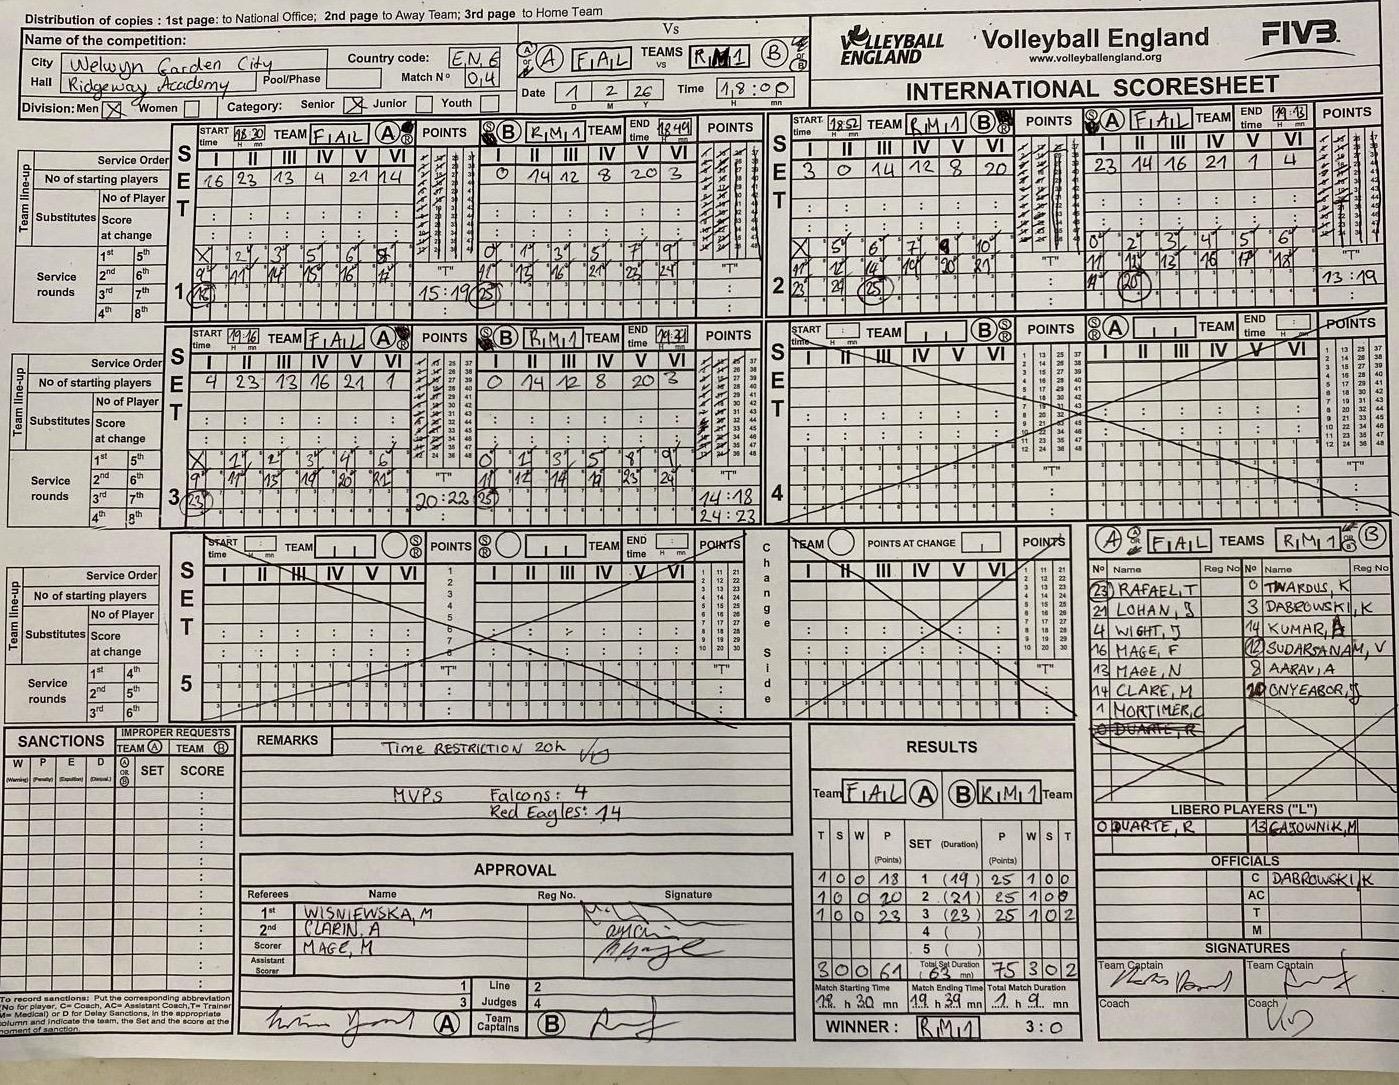 Distribution of copies : 1st page: to National Office; 2nd page to Away Team; 3rd page to Home Team
Name of the competition:
City Welwyn Garden City Country code: E N G
Hall Ridgeway Academy Pool/Phase Match Nº 0 4
Division: Men X Women Category: Senior X Junior Youth
Vs
A FAL TEAMS vs RM1 B
Date 1 2 26 Time 18:00
D M Y H mn
VOLLEYBALL ENGLAND
Volleyball England
www.volleyballengland.org
FIVB
INTERNATIONAL SCORESHEET
SET 1
START time 18:30 TEAM FAL A POINTS B RM1 TEAM END time 18:49 POINTS
Service Order I II III IV V VI I II III IV V VI
No of starting players 16 23 13 4 21 14 0 14 12 8 20 3
Team line-up
Substitutes
No of Player
Score at change
Service rounds
1st 5th X 2 3 5 6 8 0 1 3 5 7 9
2nd 6th 9 11 14 15 16 17 11 15 16 21 23 24
3rd 7th 18 15:19 25
4th 8th
"T"
SET 2
START time 18:52 TEAM RM1 B POINTS A FAL TEAM END time 19:13 POINTS
I II III IV V VI I II III IV V VI
3 0 14 12 8 20 23 14 16 21 1 4
X 5 6 7 9 10 0 2 3 4 5 6
11 12 14 19 20 21 11 12 13 16 17 18
23 24 25 19 20 13:19
"T"
SET 3
START time 19:16 TEAM FAL A POINTS B RM1 TEAM END time POINTS
Service Order I II III IV V VI I II III IV V VI
No of starting players 4 23 13 16 21 1 0 14 12 8 20 3
Team line-up
Substitutes
No of Player
Score at change
Service rounds
1st 5th X 1 2 3 4 6 0 1 3 5 8 9
2nd 6th 9 11 15 19 20 21 11 12 14 19 23 24
3rd 7th 23 20:22 25 14:18
4th 8th 24:23
"T"
SET 4
START time TEAM B POINTS A TEAM END time POINTS
I II III IV V VI I II III IV V VI
"T"
SET 5
START time TEAM POINTS TEAM END time POINTS
Service Order I II III IV V VI I II III IV V VI
No of starting players
Team line-up
Substitutes
No of Player
Score at change
Service rounds
1st 4th
2nd 5th
3rd 6th
"T"
Change Side
TEAM POINTS AT CHANGE POINTS
I II III IV V VI
A FAL TEAMS RM1 B
Nº Name Reg No Nº Name Reg No
23 RAFAEL, T 0 TWARDUS, K
21 LOHAN, J 3 DABROWSKI, K
4 WIGHT, J 14 KUMAR, A
16 MAGE, F 12 SUDARSANAM, V
13 MAGE, N 8 AARAV, A
14 CLARE, M 20 ONYEABOR, J
1 MORTIMER, C
0 DUARTE, R
LIBERO PLAYERS ("L")
0 DUARTE, R 13 GAJOWNIK, M
OFFICIALS
C DABROWSKI, K
AC
T
M
SIGNATURES
Team Captain Team Captain
Coach Coach
SANCTIONS
IMPROPER REQUESTS
TEAM A TEAM B
W P E D A OR B SET SCORE
(Warning) (Penalty) (Expulsion) (Disqual.)
To record sanctions: Put the corresponding abbreviation
(No for player, C= Coach, AC= Assistant Coach, T= Trainer
M= Medical) or D for Delay Sanctions, in the appropriate
column and indicate the team, the Set and the score at the
moment of sanction.
REMARKS
Time RESTRICTION 20h
MVPs Falcons: 4
Red Eagles: 14
APPROVAL
Referees Name Reg No. Signature
1st WISNIEWSKA, M
2nd CLARIN, A
Scorer MAGE, M
Assistant Scorer
1 Line 2
3 Judges 4
A Team Captains B
RESULTS
Team FAL A B RM1 Team
T S W P (Points) SET (Duration) P (Points) W S T
1 0 0 18 1 (19) 25 1 0 0
1 0 0 20 2 (21) 25 1 0 0
1 0 0 23 3 (23) 25 1 0 2
4 ( )
5 ( )
3 0 0 61 Total Set Duration (63 mn) 75 3 0 2
Match Starting Time Match Ending Time Total Match Duration
18 h 30 mn 19 h 39 mn 1 h 9 mn
WINNER : RM1 3:0